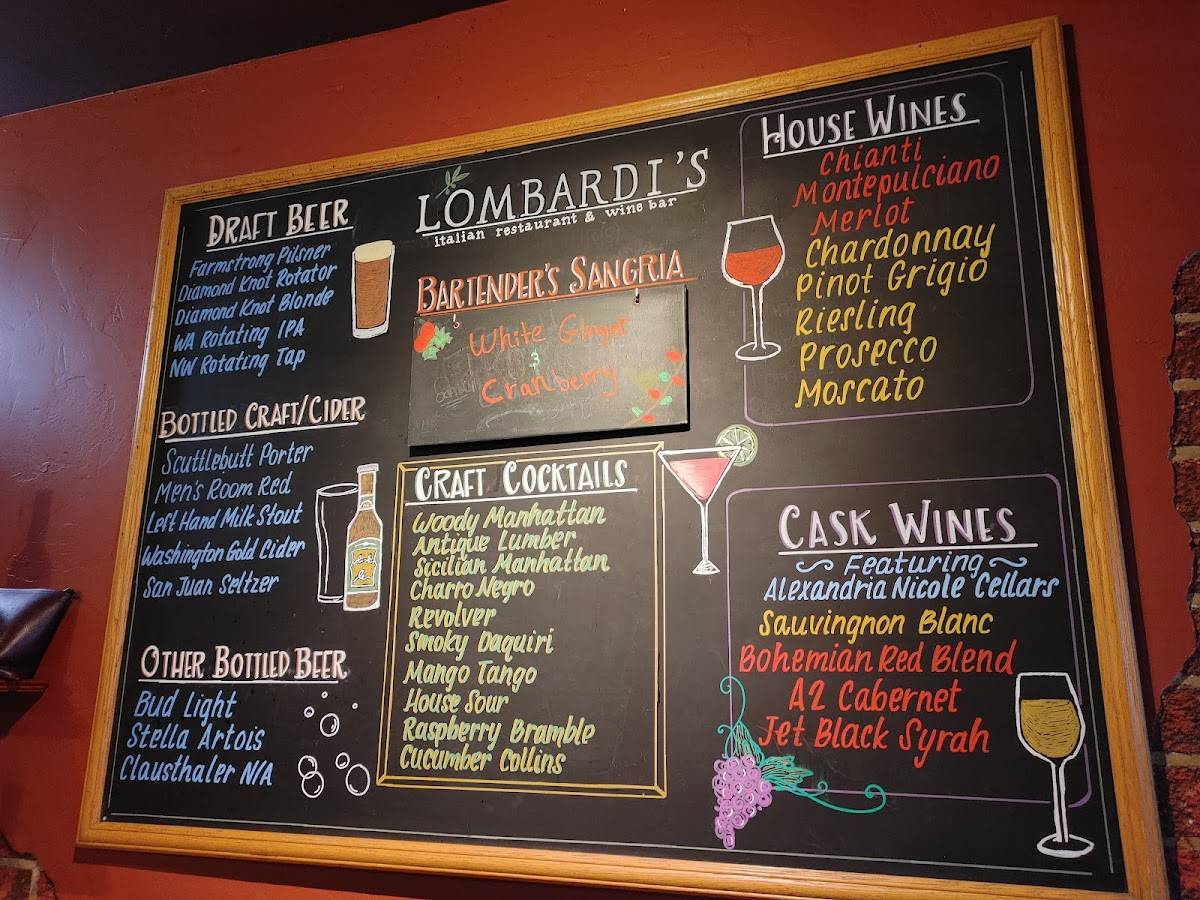 LOMBARDI'S
italian restaurant & wine bar
DRAFT BEER
Farmstrong Pilsner
Diamond Knot Rotator
Diamond Knot Blonde
WA Rotating IPA
NW Rotating Tap
BOTTLED CRAFT/CIDER
Scuttlebutt Porter
Men's Room Red
Left Hand Milk Stout
Washington Gold Cider
San Juan Seltzer
OTHER BOTTLED BEER
Bud Light
Stella Artois
Clausthaler N/A
BARTENDER'S SANGRIA
White Ginger
&
Cranberry
CRAFT COCKTAILS
Woody Manhattan
Antique Lumber
Sicilian Manhattan
Charro Negro
Revolver
Smoky Daquiri
Mango Tango
House Sour
Raspberry Bramble
Cucumber Collins
HOUSE WINES
Chianti
Montepulciano
Merlot
Chardonnay
Pinot Grigio
Riesling
Prosecco
Moscato
CASK WINES
~ Featuring ~
Alexandria Nicole Cellars
Sauvingnon Blanc
Bohemian Red Blend
A2 Cabernet
Jet Black Syrah